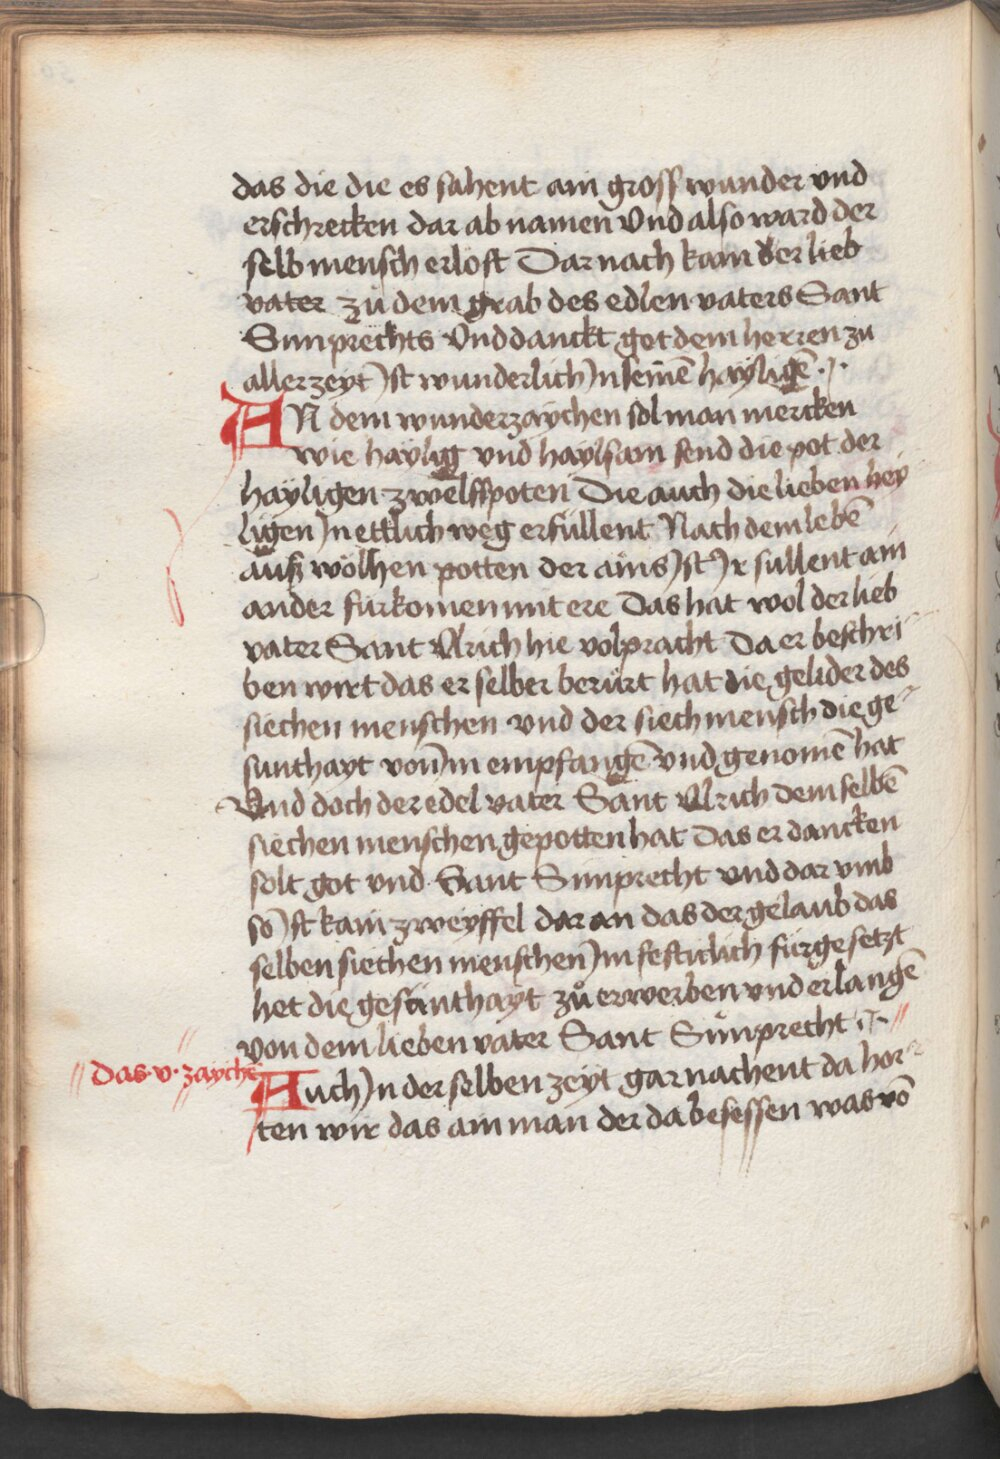 das die die es sahent ain gross wunder vnd
erschrecken dar ab namen Vnd also ward der
selb mensch erlöst Dar nach kam der lieb
vater zu dem grab des edlen vaters Sant
Simprechts Vnd danckt got dem herren zu
aller zeyt Jst wunderlich Jn seinē hayligē
AN dem wunderzaychen sol man mercken
wie haylig vnd haylsam send die pot der
hayligen zwelffpoten Die auch die lieben hey
ligen Jn ettlich weg erfüllent Nach dem lebē
auß wölhen potten der ains Jst Jr sullent ain
ander fürkomen mit ere Das hat wol der lieb
vater Sant Ulrich hie volpracht Da er beschri
ben wirt das er selber berürt hat die gelider des
siechen menschen vnd der siech mensch die ge
sunthayt von Jm empfangē vnd genomē hat
Vnd doch der edel vater Sant Ulrich dem selbē
siechen menschen gepotten hat Das er dancken
solt got vnd Sant Simprecht vnd dar vmb
so Jst kain zweyffel dar an das der gelaub das
selben siechen menschen Jm festiclich fürgesetzt
het die gesunthayt zů erwerben vnd erlangē
von dem lieben vater Sant Simprecht
das v. zaychē
Auch Jn der selben zeyt gar nachent da hor
ten wir das ain man der da besessen was vō